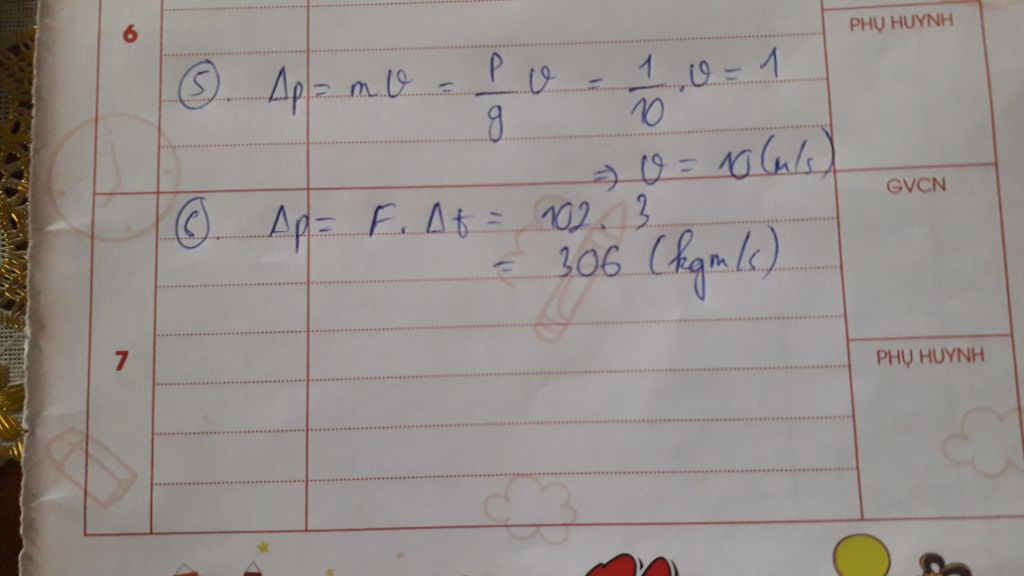 6
PHỤ HUYNH
⑤. Δp = mv = P/g v = 1/10 . v = 1
⇒ v = 10 (m/s)
GVCN
⑥. Δp = F. Δt = 102. 3
= 306 (kgm/s)
7
PHỤ HUYNH